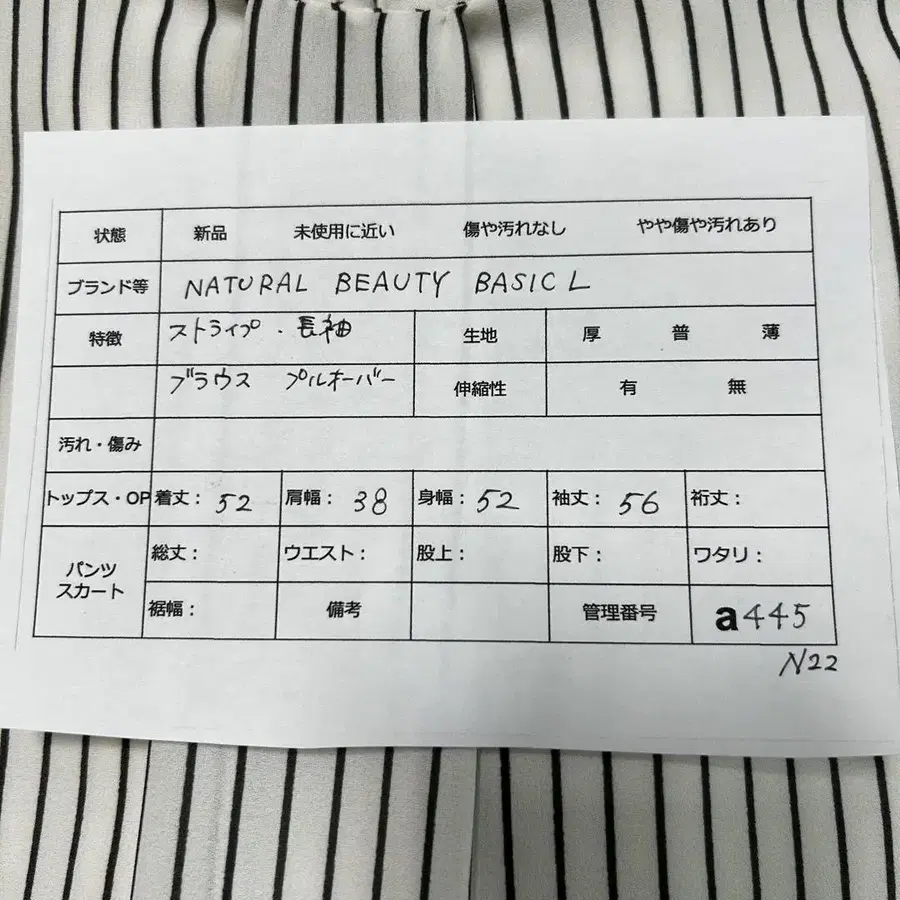 状態 新品 未使用に近い 傷や汚れなし やや傷や汚れあり
ブランド等 NATURAL BEAUTY BASIC L
特徴 ストライプ・長袖 生地 厚 普 薄
ブラウス プルオーバー 伸縮性 有 無
汚れ・傷み
トップス・OP 着丈: 52 肩幅: 38 身幅: 52 袖丈: 56 裄丈:
パンツ スカート 総丈: ウエスト: 股上: 股下: ワタリ:
裾幅: 備考 管理番号 a445
N22